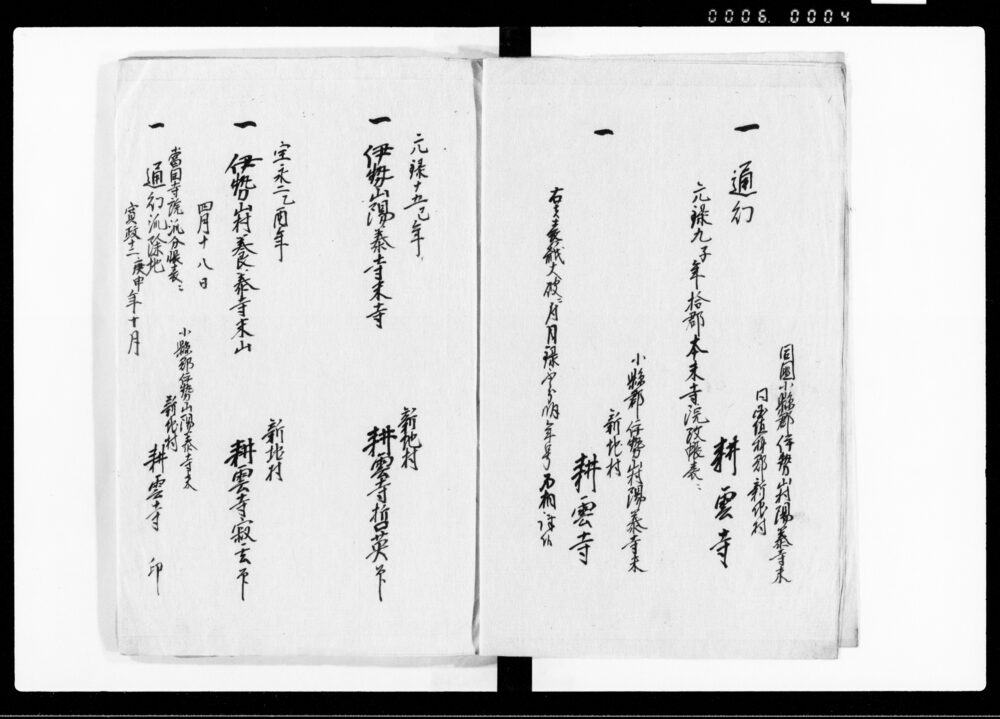 0006 0004
同國小縣郡伊勢山村陽泰寺末
同 埴科郡新地村
一 通幻 耕雲寺
元禄九子年拾郡本末寺院改帳表ニ
一
小縣郡伊勢山村陽泰寺末
新地村
耕雲寺
右者表紙大破ニ付月禄
年号不相詳候
元禄十五巳年
新地村
一 伊勢山陽泰寺末寺 耕雲寺哲英
宝永二乙酉年
新地村
一 伊勢山村養泰寺末山 耕雲寺寂玄
四月十八日
當國寺院派分帳表ニ
小縣郡伊勢山陽泰寺末
新地村
一 通幻派除地 耕雲寺 印
寛政十二庚申年十月